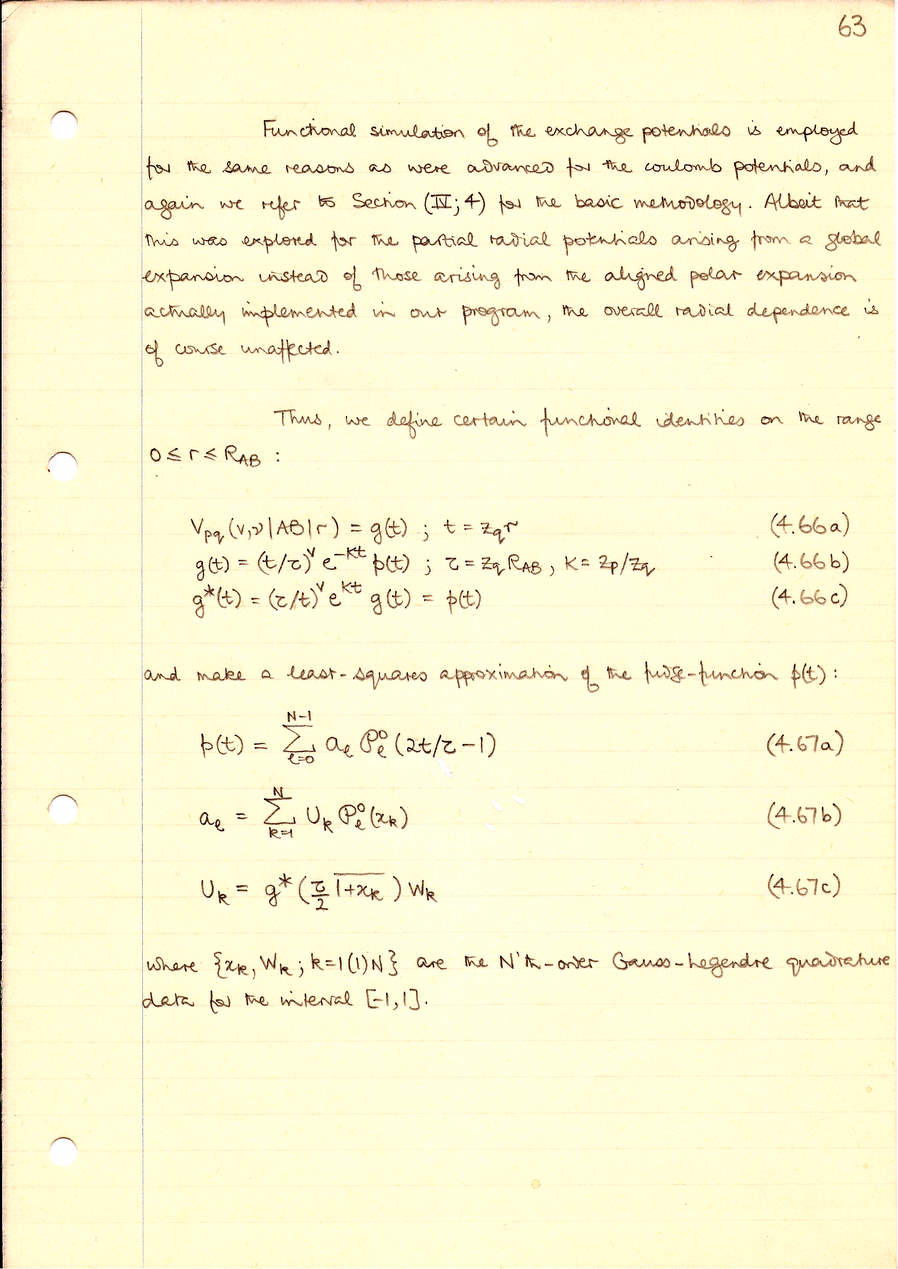 63
Functional simulation of the exchange potentials is employed
for the same reasons as were advanced for the coulomb potentials, and
again we refer to Section (IV; 4) for the basic methodology. Albeit that
this was explored for the partial radial potentials arising from a global
expansion instead of those arising from the aligned polar expansion
actually implemented in our program, the overall radial dependence is
of course unaffected.
Thus, we define certain functional identities on the range
0 ≤ r ≤ R_AB :
V_pq (v,ν|AB|r) = g(t) ; t = z_q r (4.66a)
g(t) = (t/τ)^v e^-κt p(t) ; τ = z_q R_AB , κ = z_p/z_q (4.66b)
g*(t) = (τ/t)^v e^κt g(t) = p(t) (4.66c)
and make a least-squares approximation of the fudge-function p(t) :
p(t) = Σ_{ℓ=0}^{N-1} a_ℓ 𝒫_ℓ^0 (2t/τ - 1) (4.67a)
a_ℓ = Σ_{k=1}^{N} U_k 𝒫_ℓ^0 (x_k) (4.67b)
U_k = g* (τ/2 1+x_k) W_k (4.67c)
where {x_k, W_k ; k=1(1)N} are the N'th-order Gauss-Legendre quadrature
data for the interval [-1,1].